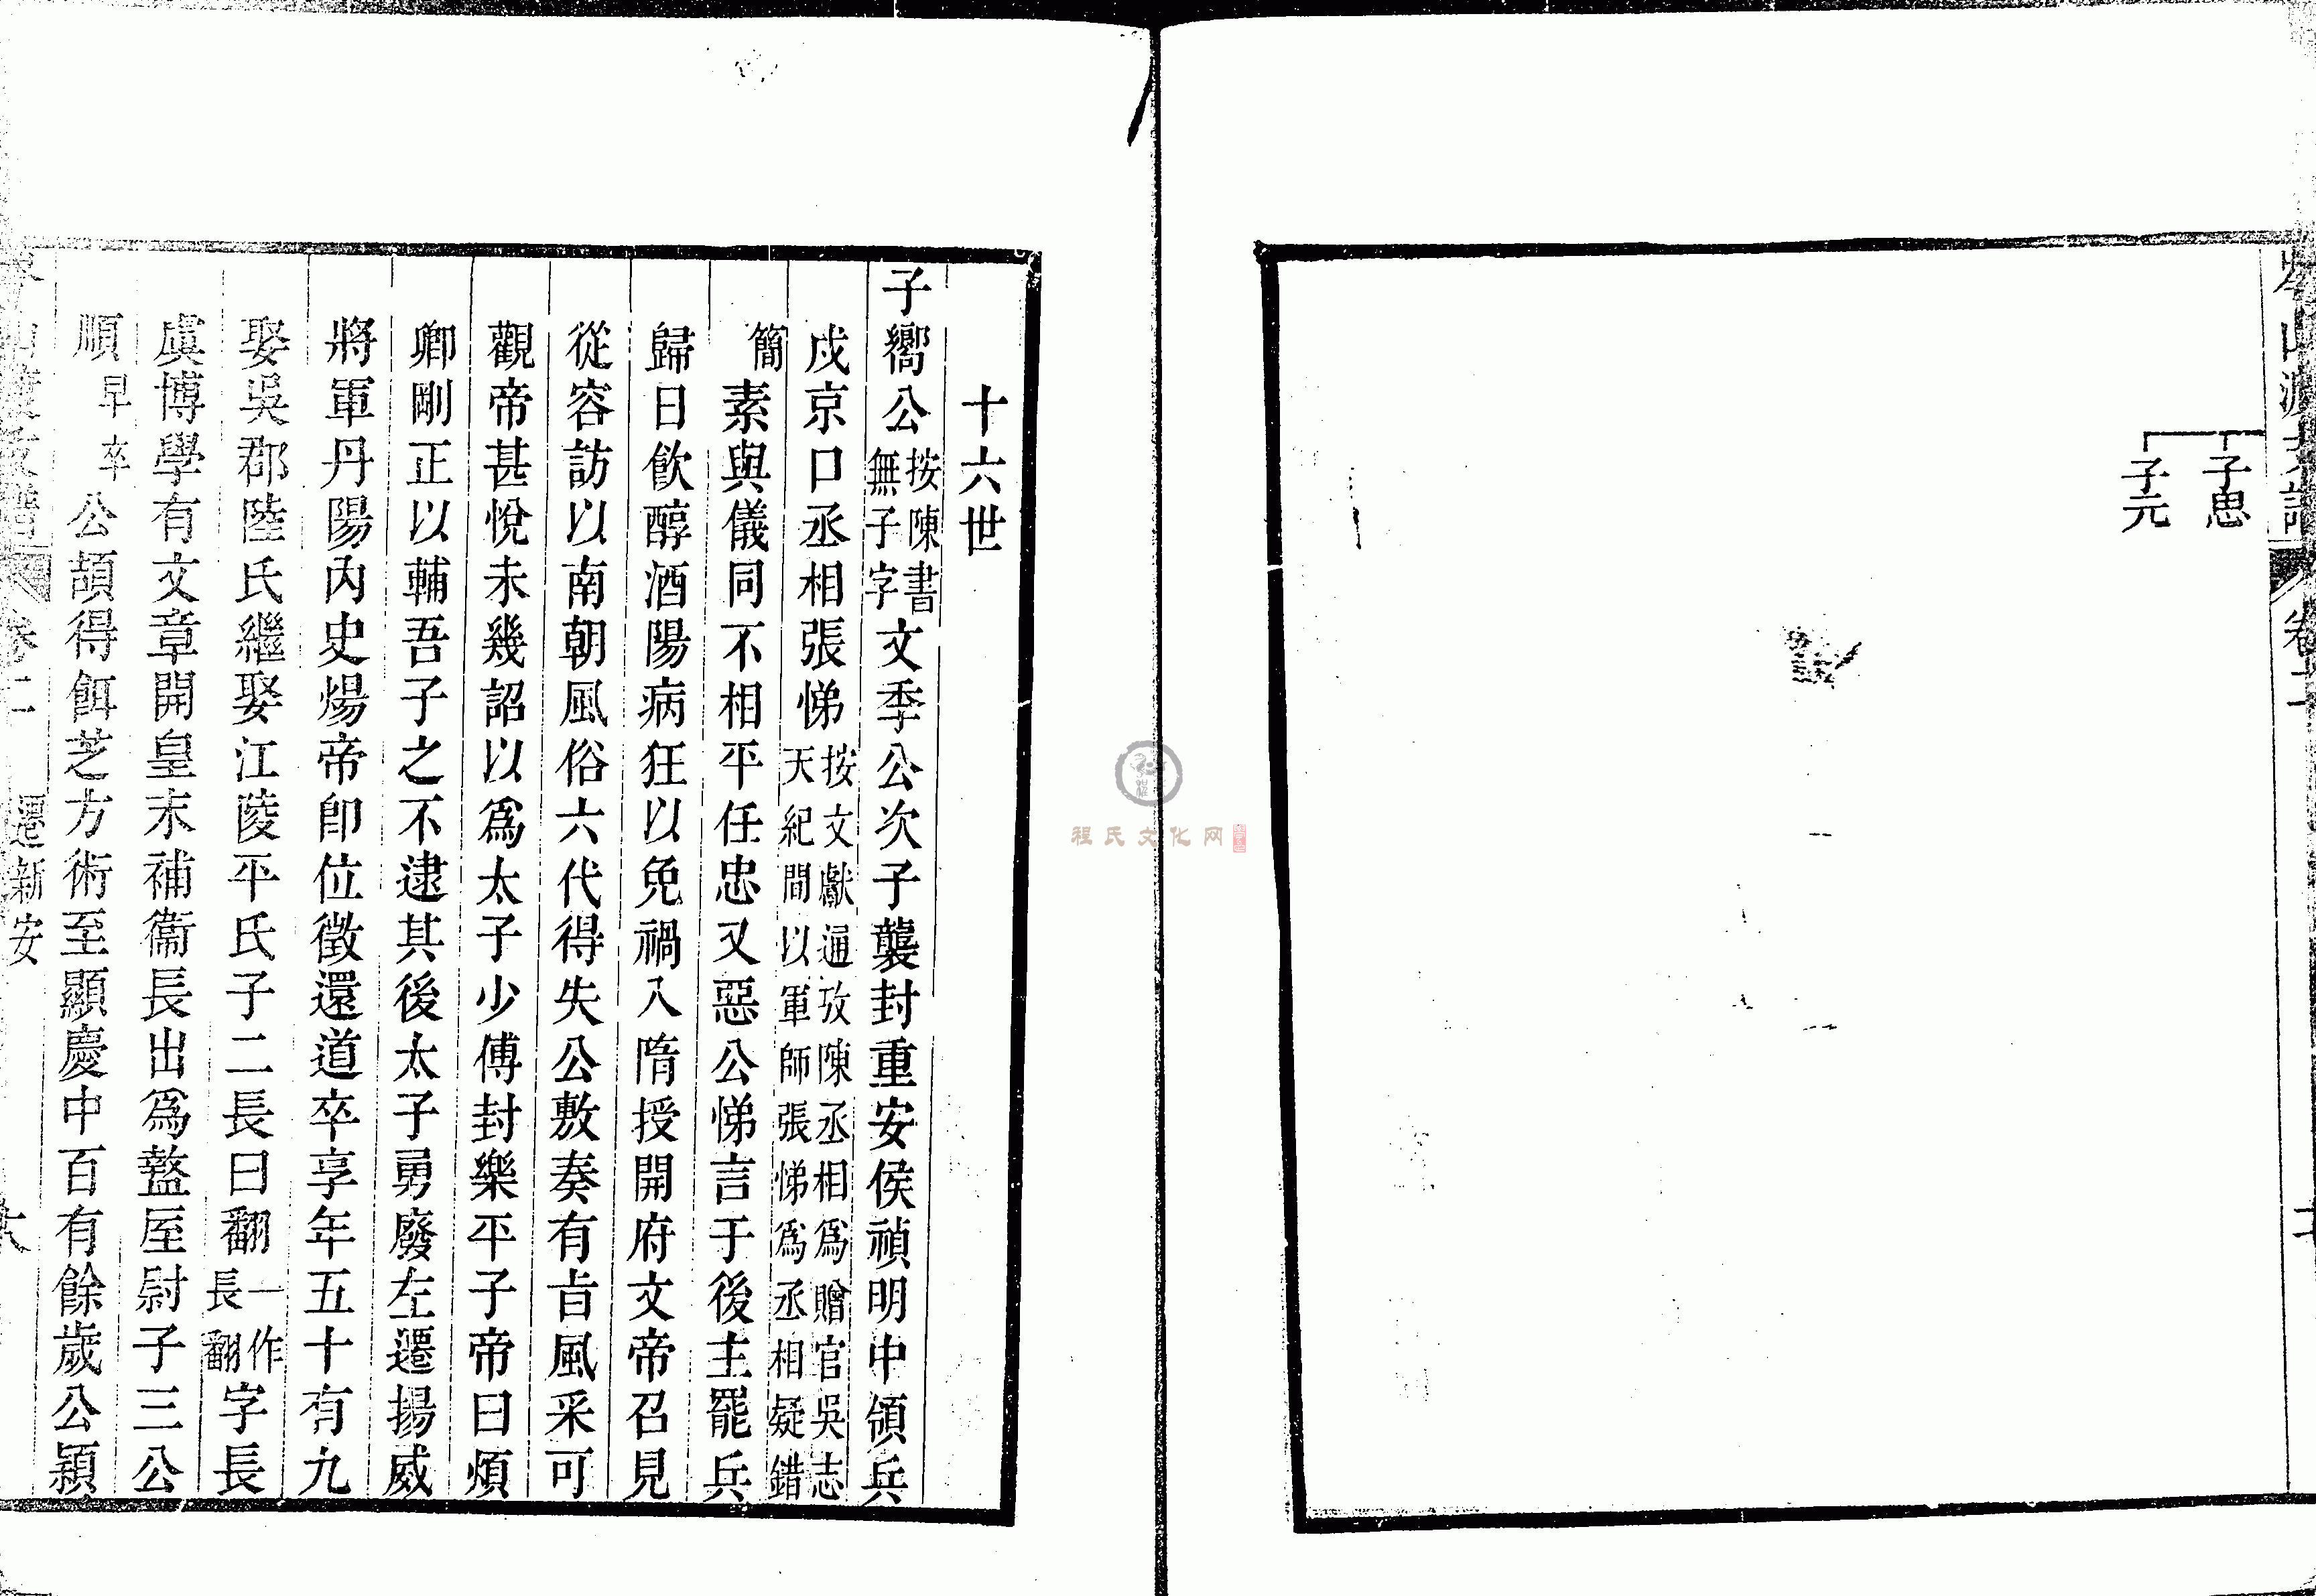 子思
子元
卷二
十六世
子嚮公按陳書無子字文季公次子襲封重安侯禎明中領兵
戍京口丞相張悌按文獻通攷陳丞相爲贈官吳志天紀間以軍師張悌爲丞相疑錯
簡素與儀同不相平任忠又惡公悌言于後主罷兵
歸日飲醇酒陽病狂以免禍入隋授開府文帝召見
從容訪以南朝風俗六代得失公敷奏有旨風采可
觀帝甚悅未幾詔以爲太子少傅封樂平子帝曰煩
卿剛正以輔吾子之不逮其後太子勇廢左遷揚威
將軍丹陽內史煬帝卽位徵還道卒享年五十有九
娶吳郡陸氏繼娶江陵平氏子二長曰翻一作長翻字長
虞博學有文章開皇末補衞長出爲盩厔尉子三公
順早卒公頡得餌芝方術至顯慶中百有餘歲公穎
卷二 遷新安
程氏文化网